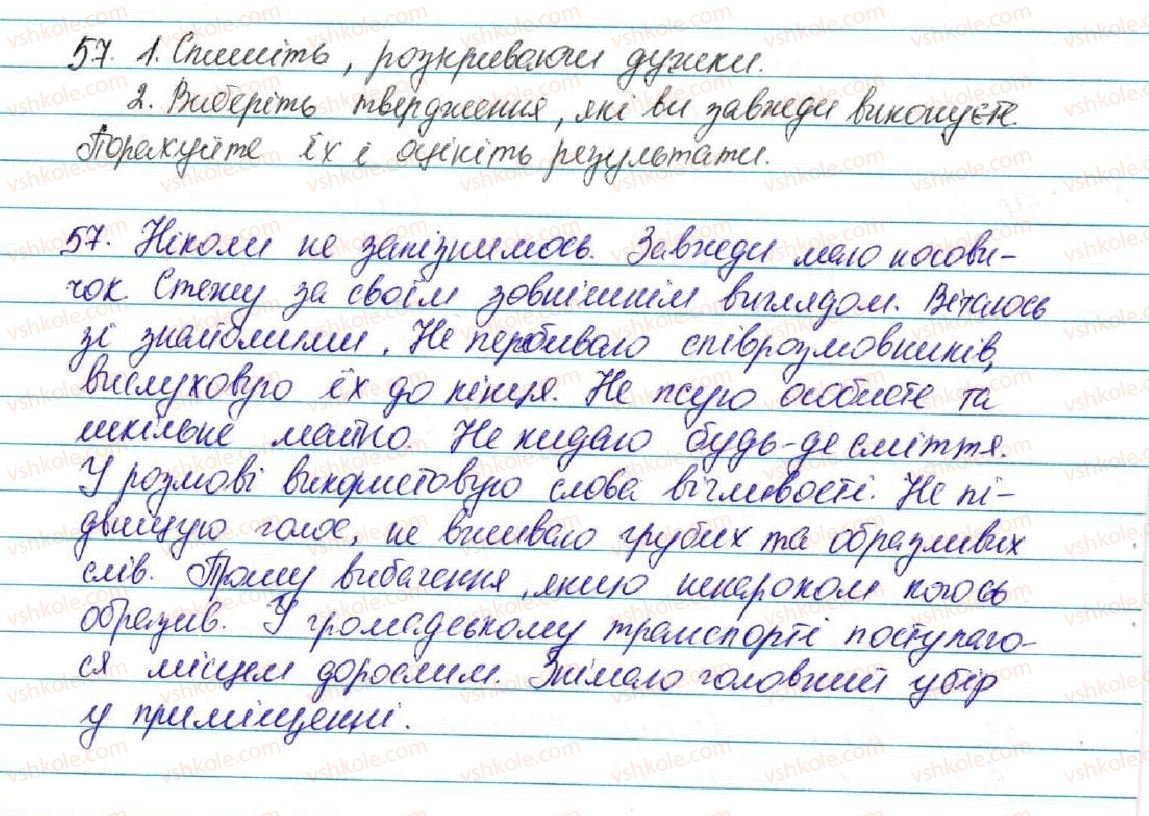 57. 1. Спишіть, розкриваючи дужки.
2. Виберіть твердження, які ви завжди виконуєте.
Порахуйте їх і оцініть результати.
57. Ніколи не запізнююсь. Завжди маю носови-
чок. Стежу за своїм зовнішнім виглядом. Вітаюсь
зі знайомими. Не перебиваю співрозмовників,
вислуховую їх до кінця. Не псую особисте та
шкільне майно. Не кидаю будь-де сміття.
У розмові використовую слова ввічливості. Не пі-
двищую голос, не вживаю грубих та образливих
слів. Прошу вибачення, якщо ненароком когось
образив. У громадському транспорті поступаю-
ся місцем дорослим. Знімаю головний убір
у приміщенні.